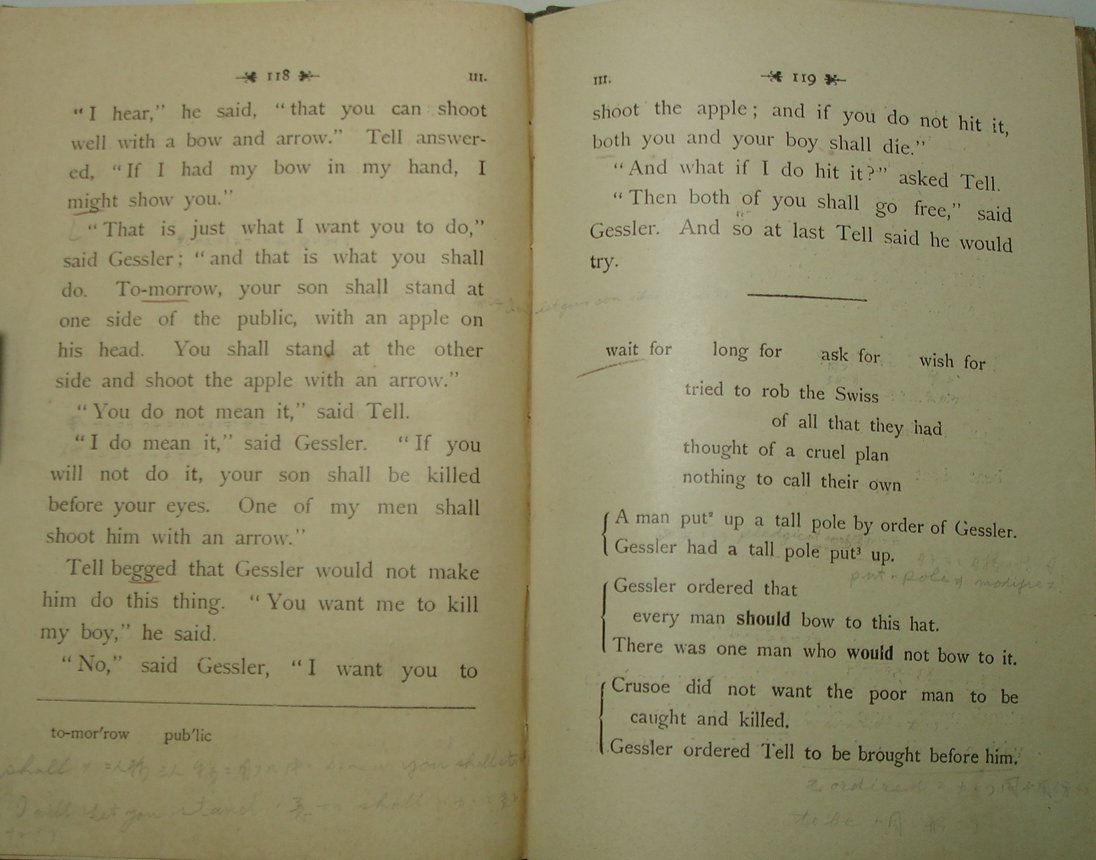 118
III.
"I hear," he said, "that you can shoot
well with a bow and arrow." Tell answer-
ed, "If I had my bow in my hand, I
might show you."
"That is just what I want you to do,"
said Gessler; "and that is what you shall
do. To-morrow, your son shall stand at
one side of the public, with an apple on
his head. You shall stand at the other
side and shoot the apple with an arrow."
"You do not mean it," said Tell.
"I do mean it," said Gessler. "If you
will not do it, your son shall be killed
before your eyes. One of my men shall
shoot him with an arrow."
Tell begged that Gessler would not make
him do this thing. "You want me to kill
my boy," he said.
"No," said Gessler, "I want you to
to-mor'row pub'lic
shall
you shall
I will let you stand
shall
III.
119
shoot the apple; and if you do not hit it,
both you and your boy shall die."
"And what if I do hit it?" asked Tell.
"Then both of you shall go free," said
Gessler. And so at last Tell said he would
try.
wait for long for ask for wish for
tried to rob the Swiss
of all that they had
thought of a cruel plan
nothing to call their own
A man put² up a tall pole by order of Gessler.
Gessler had a tall pole put³ up.
put pole modifies
Gessler ordered that
every man should bow to this hat.
There was one man who would not bow to it.
Crusoe did not want the poor man to be
caught and killed.
Gessler ordered Tell to be brought before him.
ordered
to be